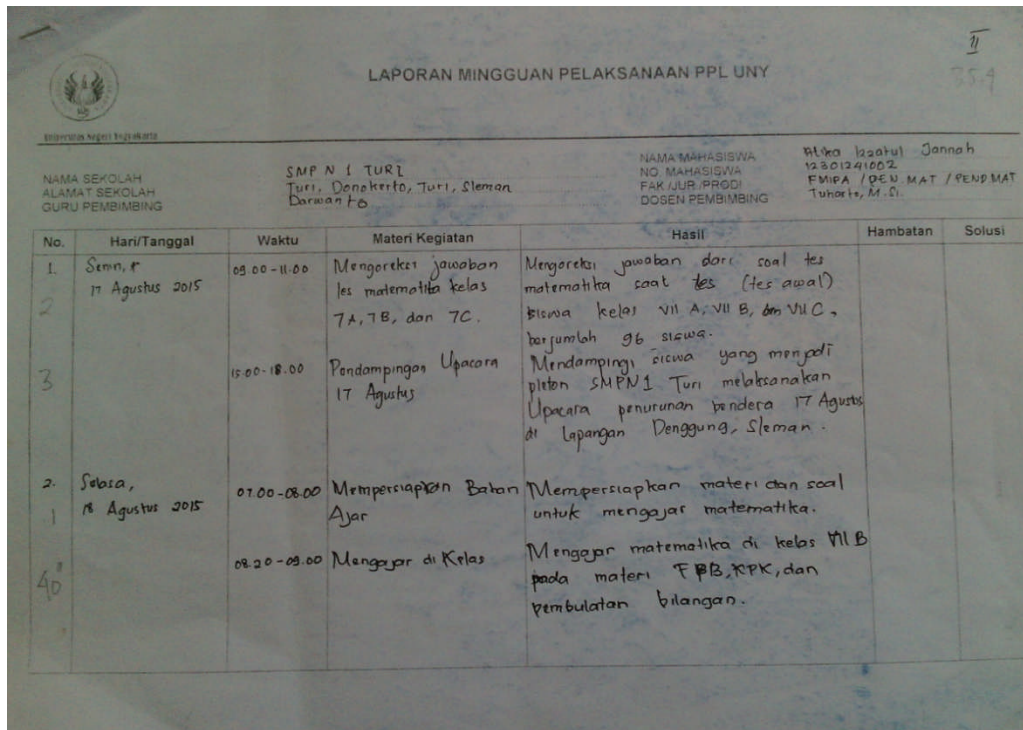 II
35.4
LAPORAN MINGGUAN PELAKSANAAN PPL UNY
Universitas Negeri Yogyakarta
NAMA SEKOLAH SMP N 1 TURI
ALAMAT SEKOLAH Turi, Donokerto, Turi, Sleman
GURU PEMBIMBING Darwanto
NAMA MAHASISWA Atika Izzatul Jannah
NO. MAHASISWA 12301241002
FAK /JUR /PRODI FMIPA / PEN. MAT / PEND. MAT
DOSEN PEMBIMBING Tuharto, M.Si.
No. Hari/Tanggal Waktu Materi Kegiatan Hasil Hambatan Solusi
1. Senin, 09.00 - 11.00 Mengoreksi jawaban Mengoreksi jawaban dari soal tes
17 Agustus 2015 tes matematika kelas matematika saat tes (tes awal)
2 7A, 7B, dan 7C. siswa kelas VII A, VII B, dan VII C,
berjumlah 96 siswa.
3 15.00 - 18.00 Pendampingan Upacara Mendampingi siswa yang menjadi
17 Agustus pleton SMPN 1 Turi melaksanakan
Upacara penurunan bendera 17 Agustus
di Lapangan Denggung, Sleman.
2. Selasa, 07.00 - 08.00 Mempersiapkan Bahan Mempersiapkan materi dan soal
1 18 Agustus 2015 Ajar untuk mengajar matematika.
40" 08.20 - 09.00 Mengajar di Kelas Mengajar matematika di kelas VII B
pada materi FPB, KPK, dan
pembulatan bilangan.